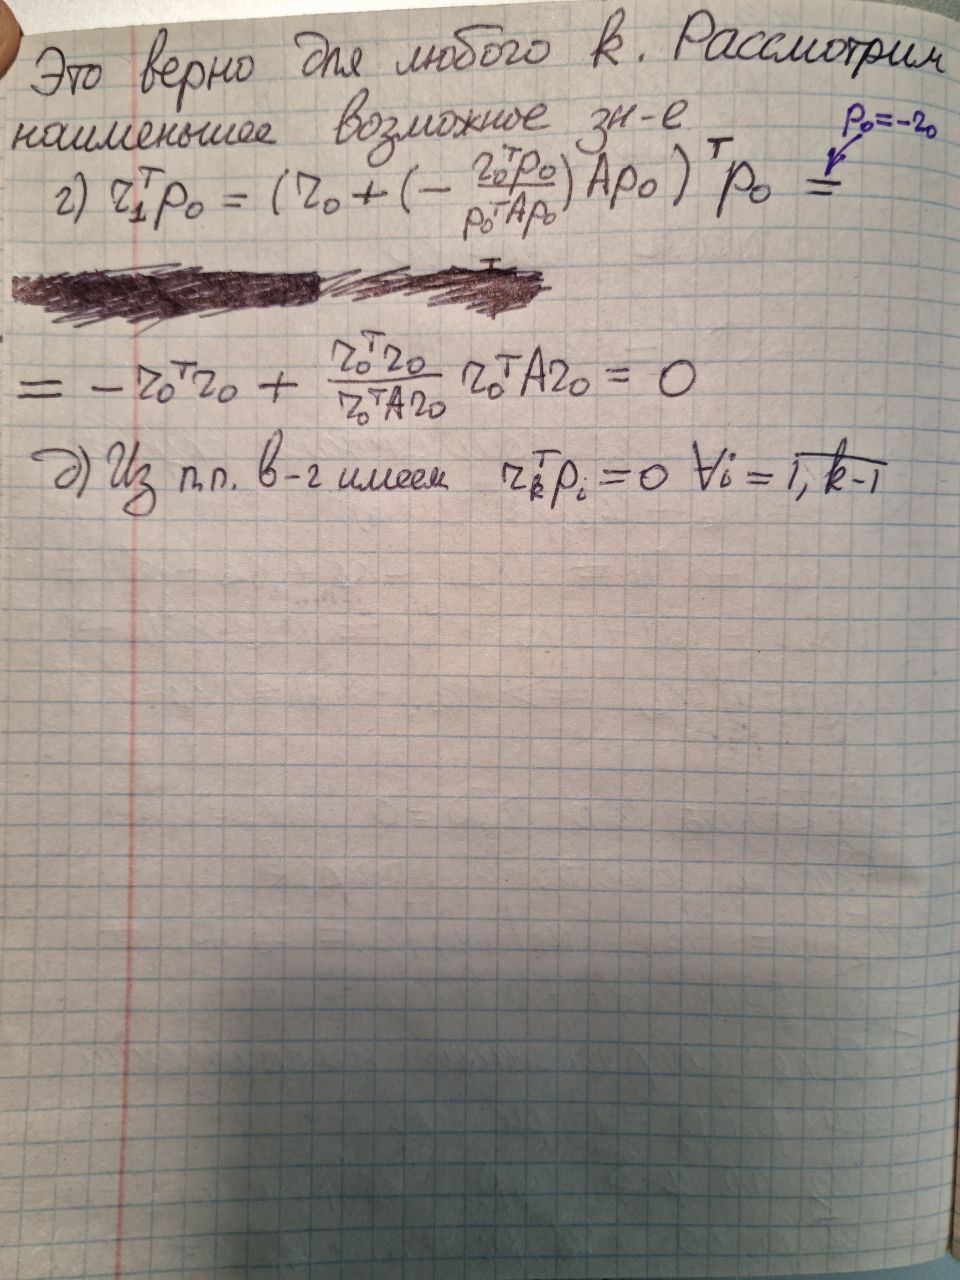 Это верно для любого k. Рассмотрим
наименьшее возможное зн-е
p₀=-r₀
г) r₁ᵀp₀ = (r₀ + (- r₀ᵀp₀ / p₀ᵀAp₀) Ap₀)ᵀ p₀ =
= - r₀ᵀr₀ + r₀ᵀr₀ / r₀ᵀAr₀ r₀ᵀAr₀ = 0
д) Из п.п. в-г имеем rₖᵀpᵢ = 0 ∀i = 1, k-1